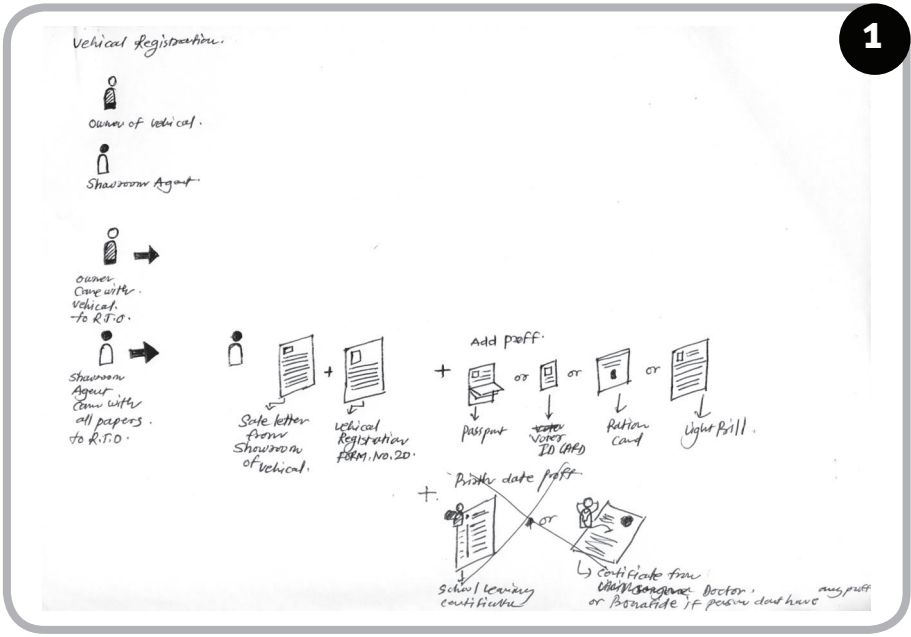 1
Vehical Registration.
Owner of vehical.
Showroom Agent.
owner
Came with
vehical.
to R.T.O.
Showroom
Agent
Came with
all papers.
to R.T.O.
Sale letter
from
Showroom
of vehical.
+
vehical
Registration
FORM. NO. 20.
+
Add proff.
Passport
or
Voter
ID CARD
or
Ration
Card
or
Light Bill.
+.
Birth date proff
School leaving
certificate
or
Certificate from
Doctor.
any proff
or Bonafide if person dont have